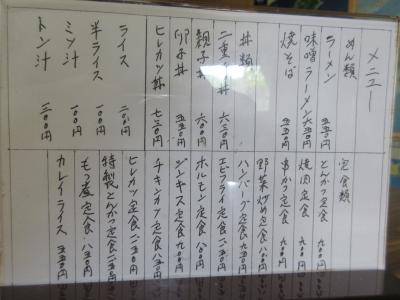 メニュー
めん類
ラーメン 五五〇円
味噌ラーメン 六五〇円
焼そば 五五〇円
丼類
二重丼 六三〇円
親子丼 六〇〇円
卵丼 五五〇円
ヒレカツ丼 七三〇円
ライス 二〇〇円
半ライス 一〇〇円
ミソ汁 一〇〇円
トン汁 三〇〇円
定食類
とんかつ定食 九〇〇円
焼肉定食 九〇〇円
串かつ定食 九〇〇円
野菜炒め定食 八〇〇円
ハンバーグ定食
エビフライ定食
ホルモン定食
ジンギス定食 九〇〇円
チキンカツ定食 八五〇円
ヒレカツ定食
特製とんかつ定食
もつ煮定食 八五〇円
カレイライス 五五〇円